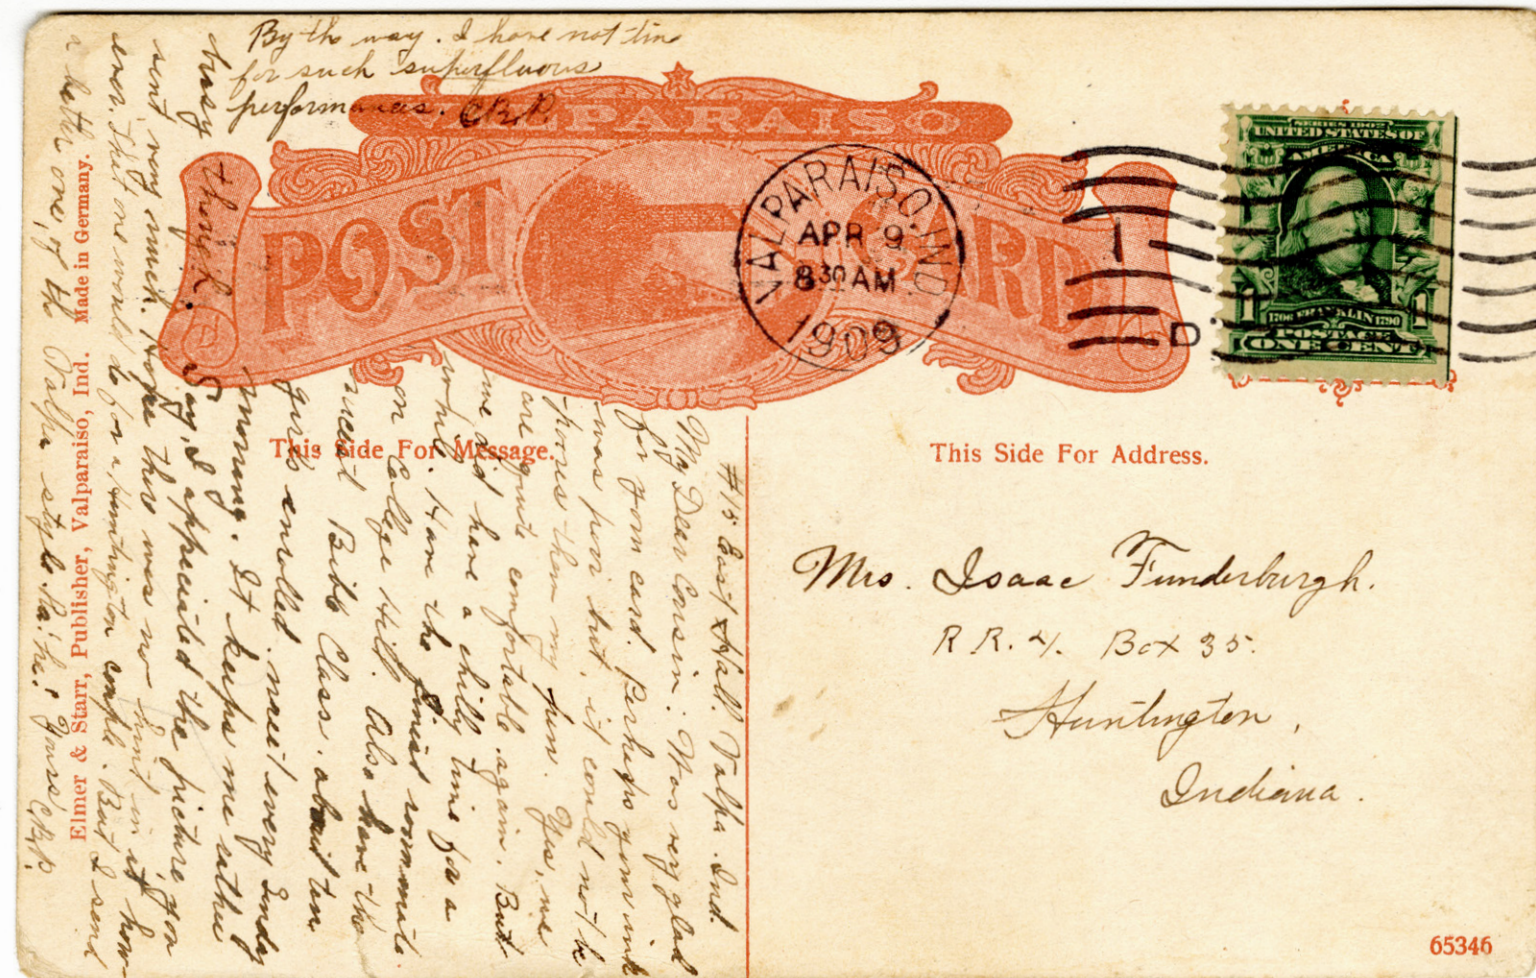 By the way. I have not time
for such superfluous
performances. C.B.R.
VALPARAISO
POST CARD
VALPARAISO, IND.
APR 9
8 30 AM
1909
D
SERIES 1902
UNITED STATES OF
AMERICA
1 1
1706 FRANKLIN 1790
POSTAGE
ONE CENT
This Side For Message.
This Side For Address.
Mrs. Isaac Funderburgh.
R.R. 4. Box 35.
Huntington,
Indiana.
65346
#15 East Hall. Valpa. Ind.
My Dear Cousin: Was very glad
for your card. Perhaps your ink
was poor but, it could not be
poorer then my pen. Yes, we
are quite comfortable again. But
we did have a chilly time for a
while. Have the finest roommate
on College Hill. Also have the
nicest Bible Class. about ten
girls enrolled. meet every Sunday
morning. It keeps me rather
busy though.
Say, I appreciated the picture you
sent very much. Hope there was no hint in it how-
ever. That one would do for a Huntington couple. But I send
a better one, of the Valpa style. Ha! ha! Yours C.B.R.
Elmer & Starr, Publisher, Valparaiso, Ind. Made in Germany.